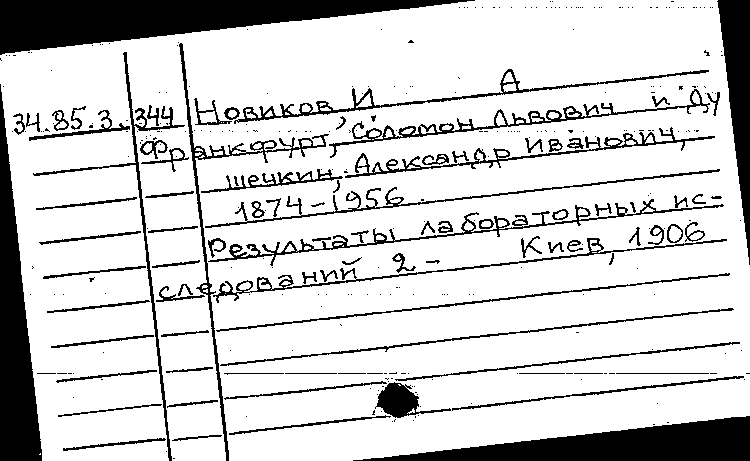 34.85.3.344 Новиков, И А
Франкфурт, Соломон Львович и Ду
шечкин, Александр Иванович,
1874-1956.
Результаты лабораторных ис-
следований 2- Киев, 1906